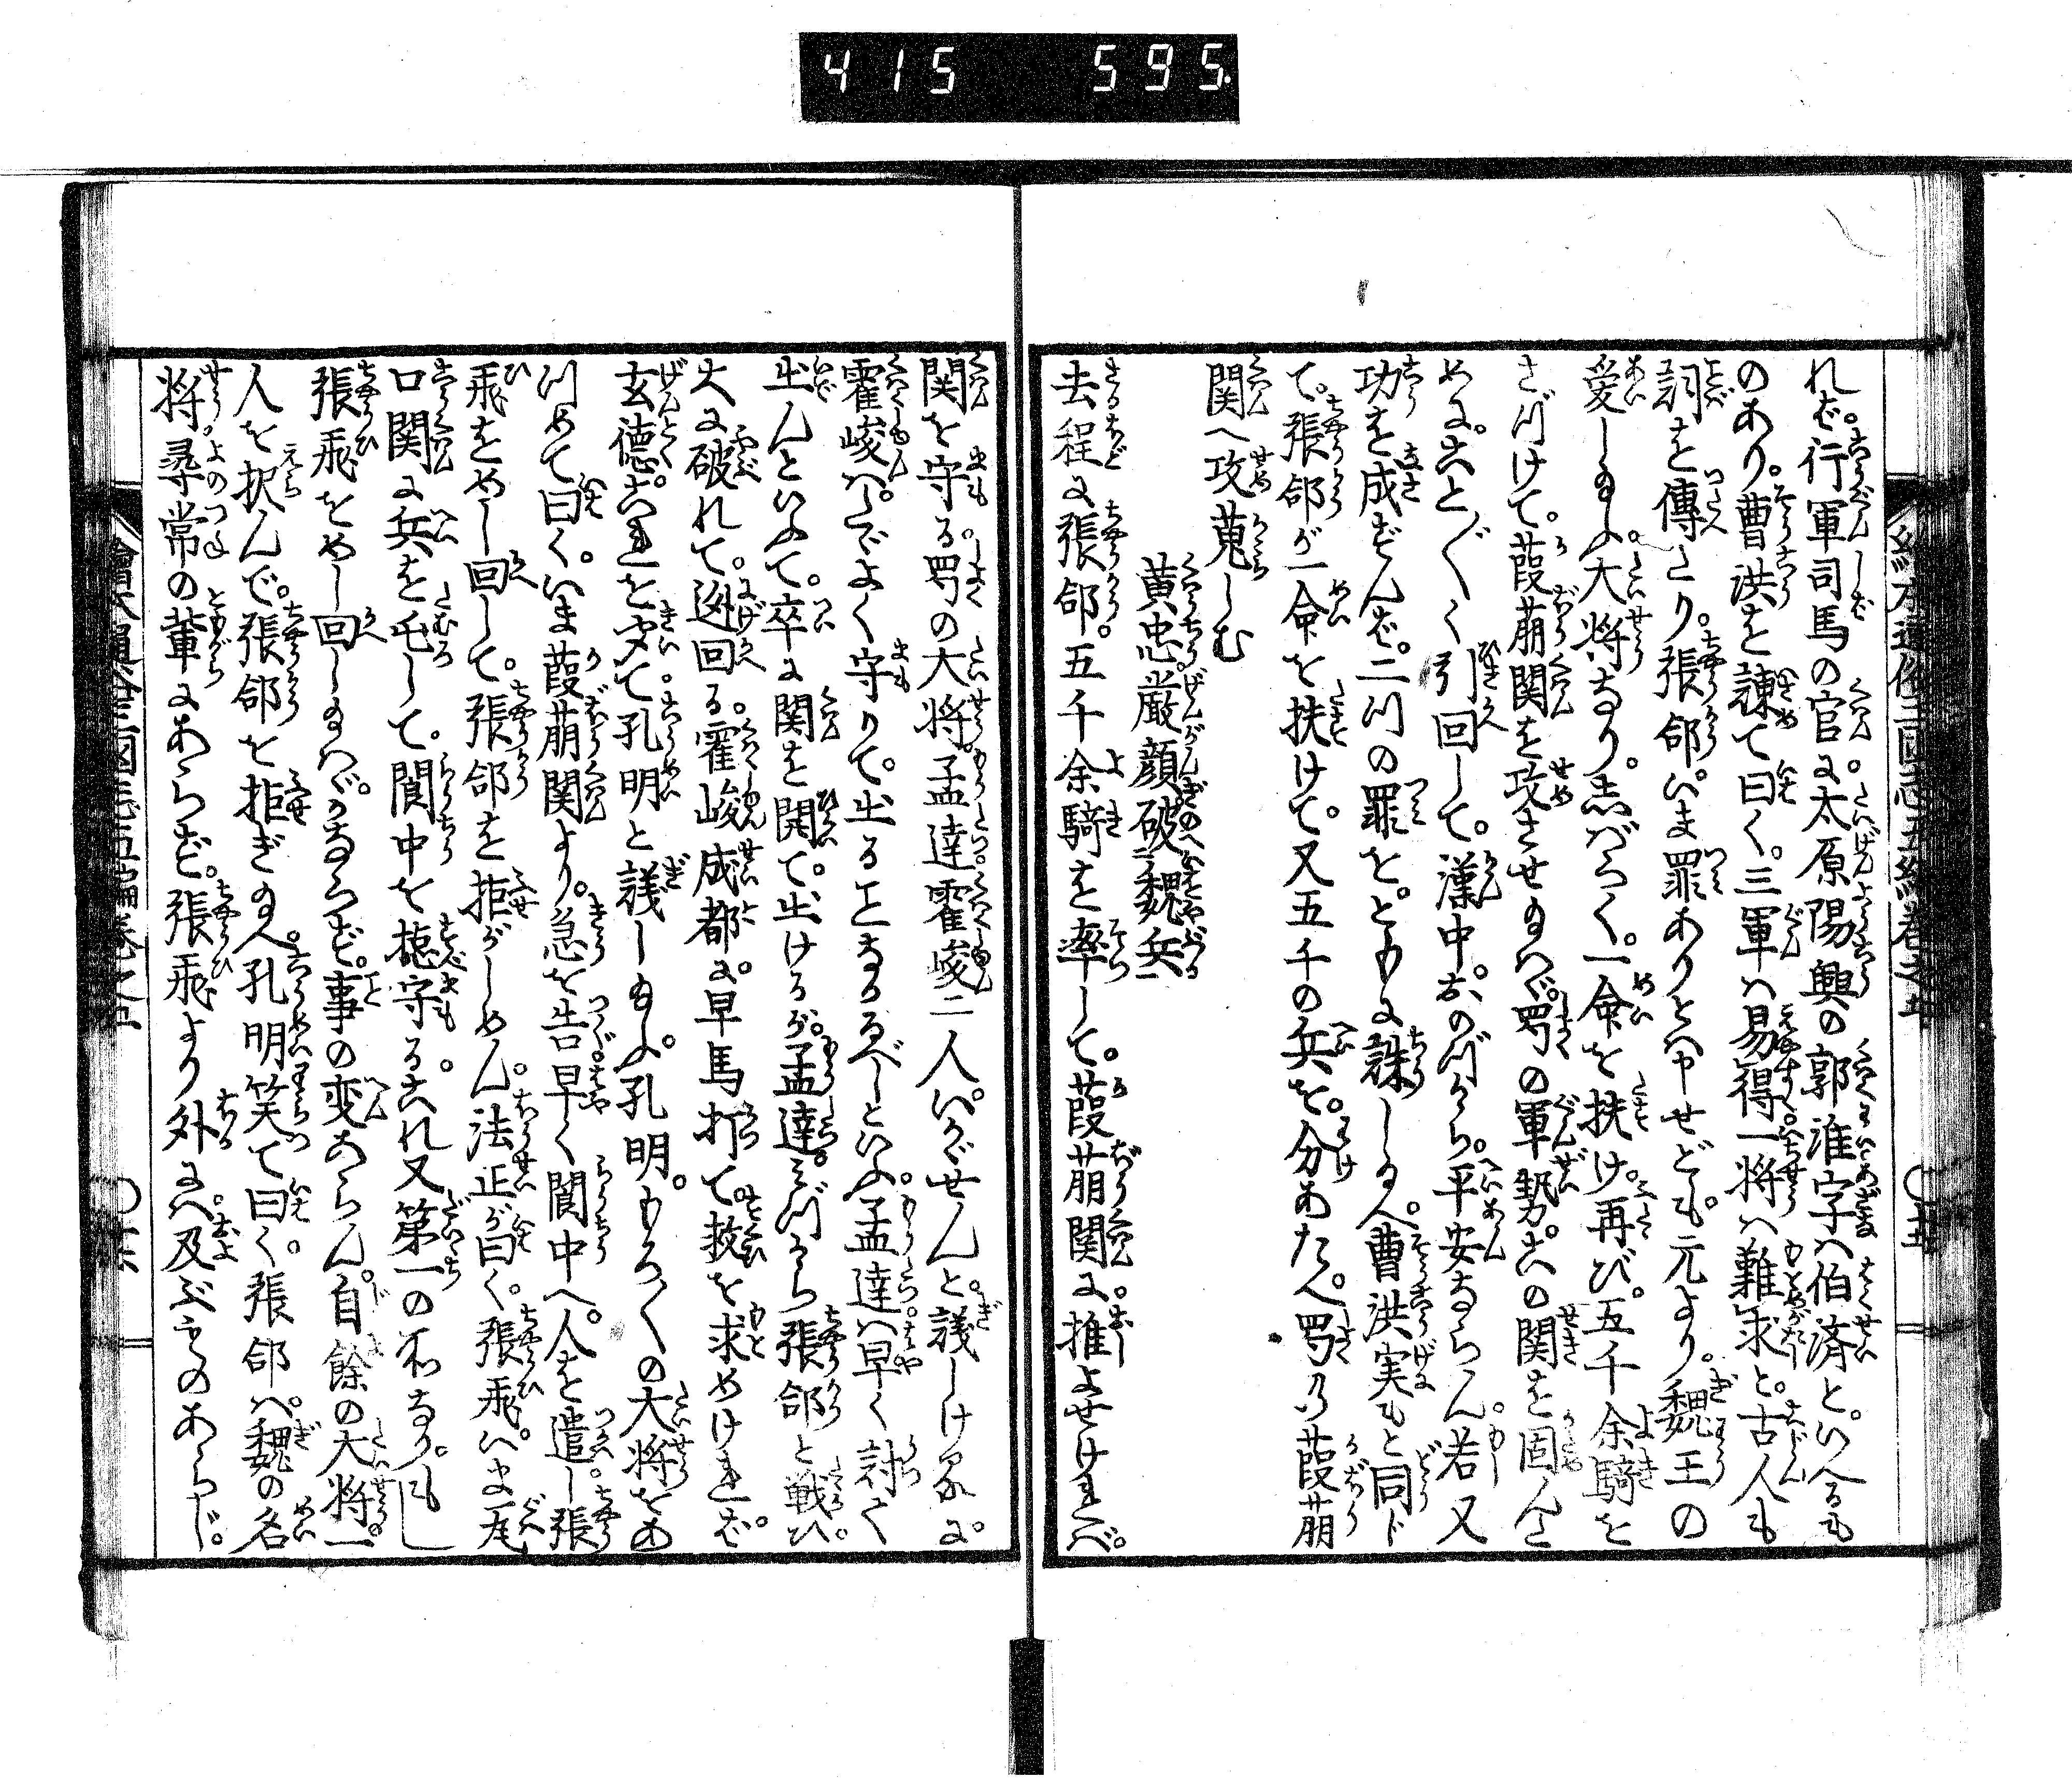 415 595
れば。行軍司馬の官に。太原陽興の郭淮字ハ伯済と。いへるも
のあり。曹洪を諫て曰く。三軍ハ易得一将ハ難求と。古人も
詞を傳たり。張郃いま罪ありとハ申せども。元より。魏王の
愛し給ふ大将なり。志ばらく。一命を扶け。再び。五千余騎を
さづけて。葭萌関を攻させ給へ。蜀の軍勢。かの関を固んた
めに。こと〴〵く引回して。漢中。おのづから。平安ならん若又
功を成ずんば。二川の罪を。ともに誅し給へ。曹洪実もと同ド
て。張郃が一命を扶けて。又五千の兵を。分あたへ。蜀の葭萌
関へ攻蒐しむ
黄忠厳顔破魏兵
去程に張郃。五千余騎を率して。葭萌関に。推よせけれバ。
関を守る。蜀の大将。孟達霍峻二人。いかゞせんと。議しけるに。
霍峻ハ。たゞよく守りて。出ることなかるべしといふ。孟達ハ早く討て
出んといふて。卒に関を開て。出けるが。孟達。みづから張郃と戦ひ。
大に破れて。迯回る。霍峻成都に早馬打て。救を求めけれバ。
玄徳。これを聞て孔明と議し給ふ。孔明。もろ〳〵の大将をあ
つめて曰く。いま葭萌関より。急を告。早く閬中へ。人を遣し。張
飛をめし回して。張郃を拒がしめん。法正が曰く。張飛。いま瓦
口関に兵を屯して。閬中を捴守る。これ又第一の所なり。もし
張飛をめし回し給ハゞ。かならず。事の変あらん。自餘の大将一
人を択んで。張郃を拒ぎ給へ。孔明笑て曰く。張郃ハ。魏の名
将。尋常の輩にあらず。張飛より外にハ。及ぶものあらじ。